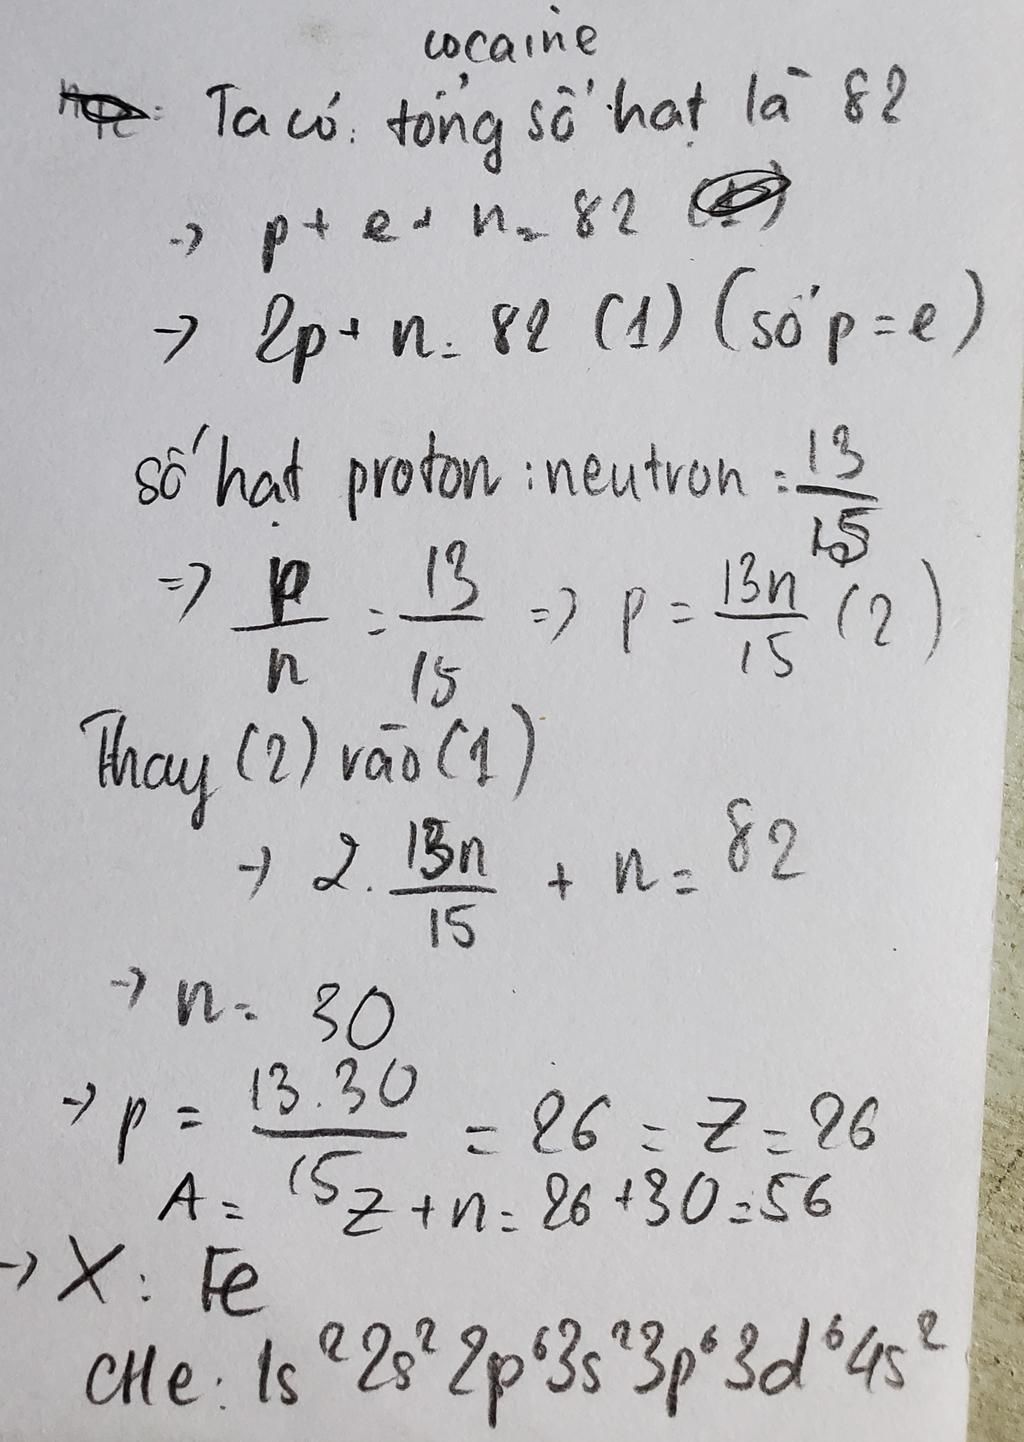 cocaine
Ta có: tổng số hạt là 82
→ p + e + n = 82
→ 2p + n = 82 (1) (số p = e)
số hạt proton : neutron = 13/15
=> p/n = 13/15 => p = 13n/15 (2)
Thay (2) vào (1)
→ 2. 13n/15 + n = 82
→ n = 30
→ p = 13.30/15 = 26 = Z = 26
A = Z + n = 26 + 30 = 56
→ X: Fe
CHe: 1s²2s²2p⁶3s²3p⁶3d⁶4s²